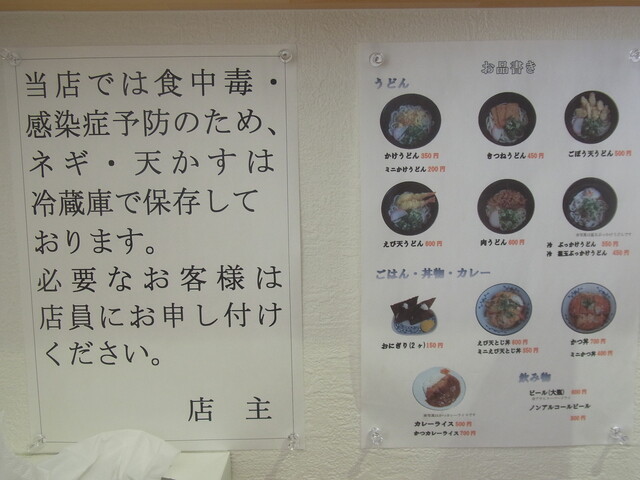 当店では食中毒・
感染症予防のため、
ネギ・天かすは
冷蔵庫で保存して
おります。
必要なお客様は
店員にお申し付け
ください。
店 主
お品書き
うどん
かけうどん 350円
ミニかけうどん 200円
きつねうどん 450円
ごぼう天うどん 500円
えび天うどん 600円
肉うどん 600円
冷 ぶっかけうどん
冷 釜玉ぶっかけうどん
ごはん・丼物・カレー
おにぎり(2ヶ) 150円
えび天とじ丼
ミニえび天とじ丼
かつ丼 700円
ミニかつ丼
カレーライス 500円
かつカレーライス 700円
飲み物
ビール(大瓶)
ノンアルコールビール